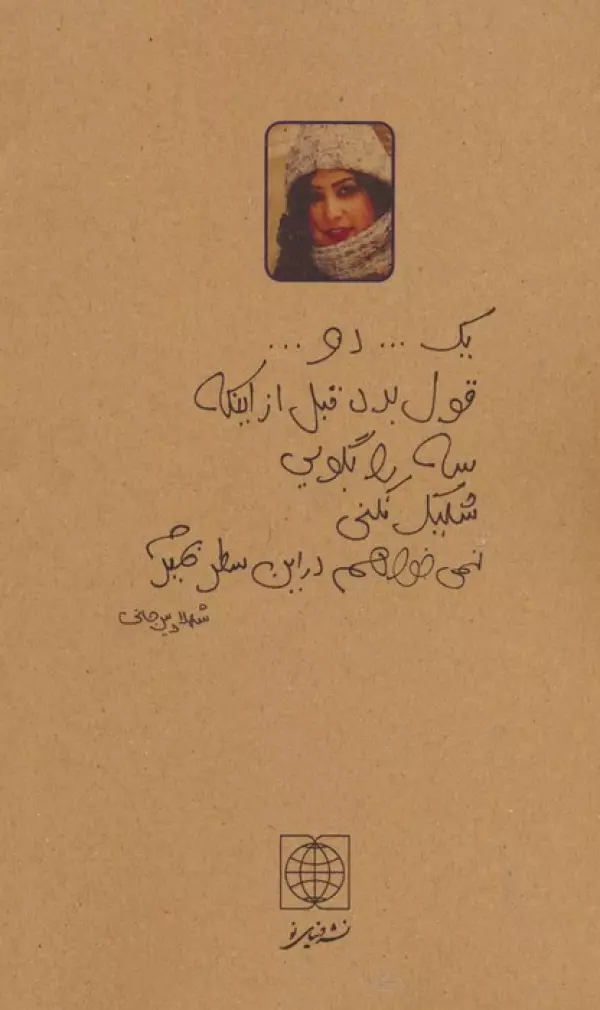 یک ... دو ...
قول بده قبل از اینکه
سه را بگویی
شلیک نکنی
نمی خواهم در این سطر بمیرم
شهلا
نشر دنیای نو